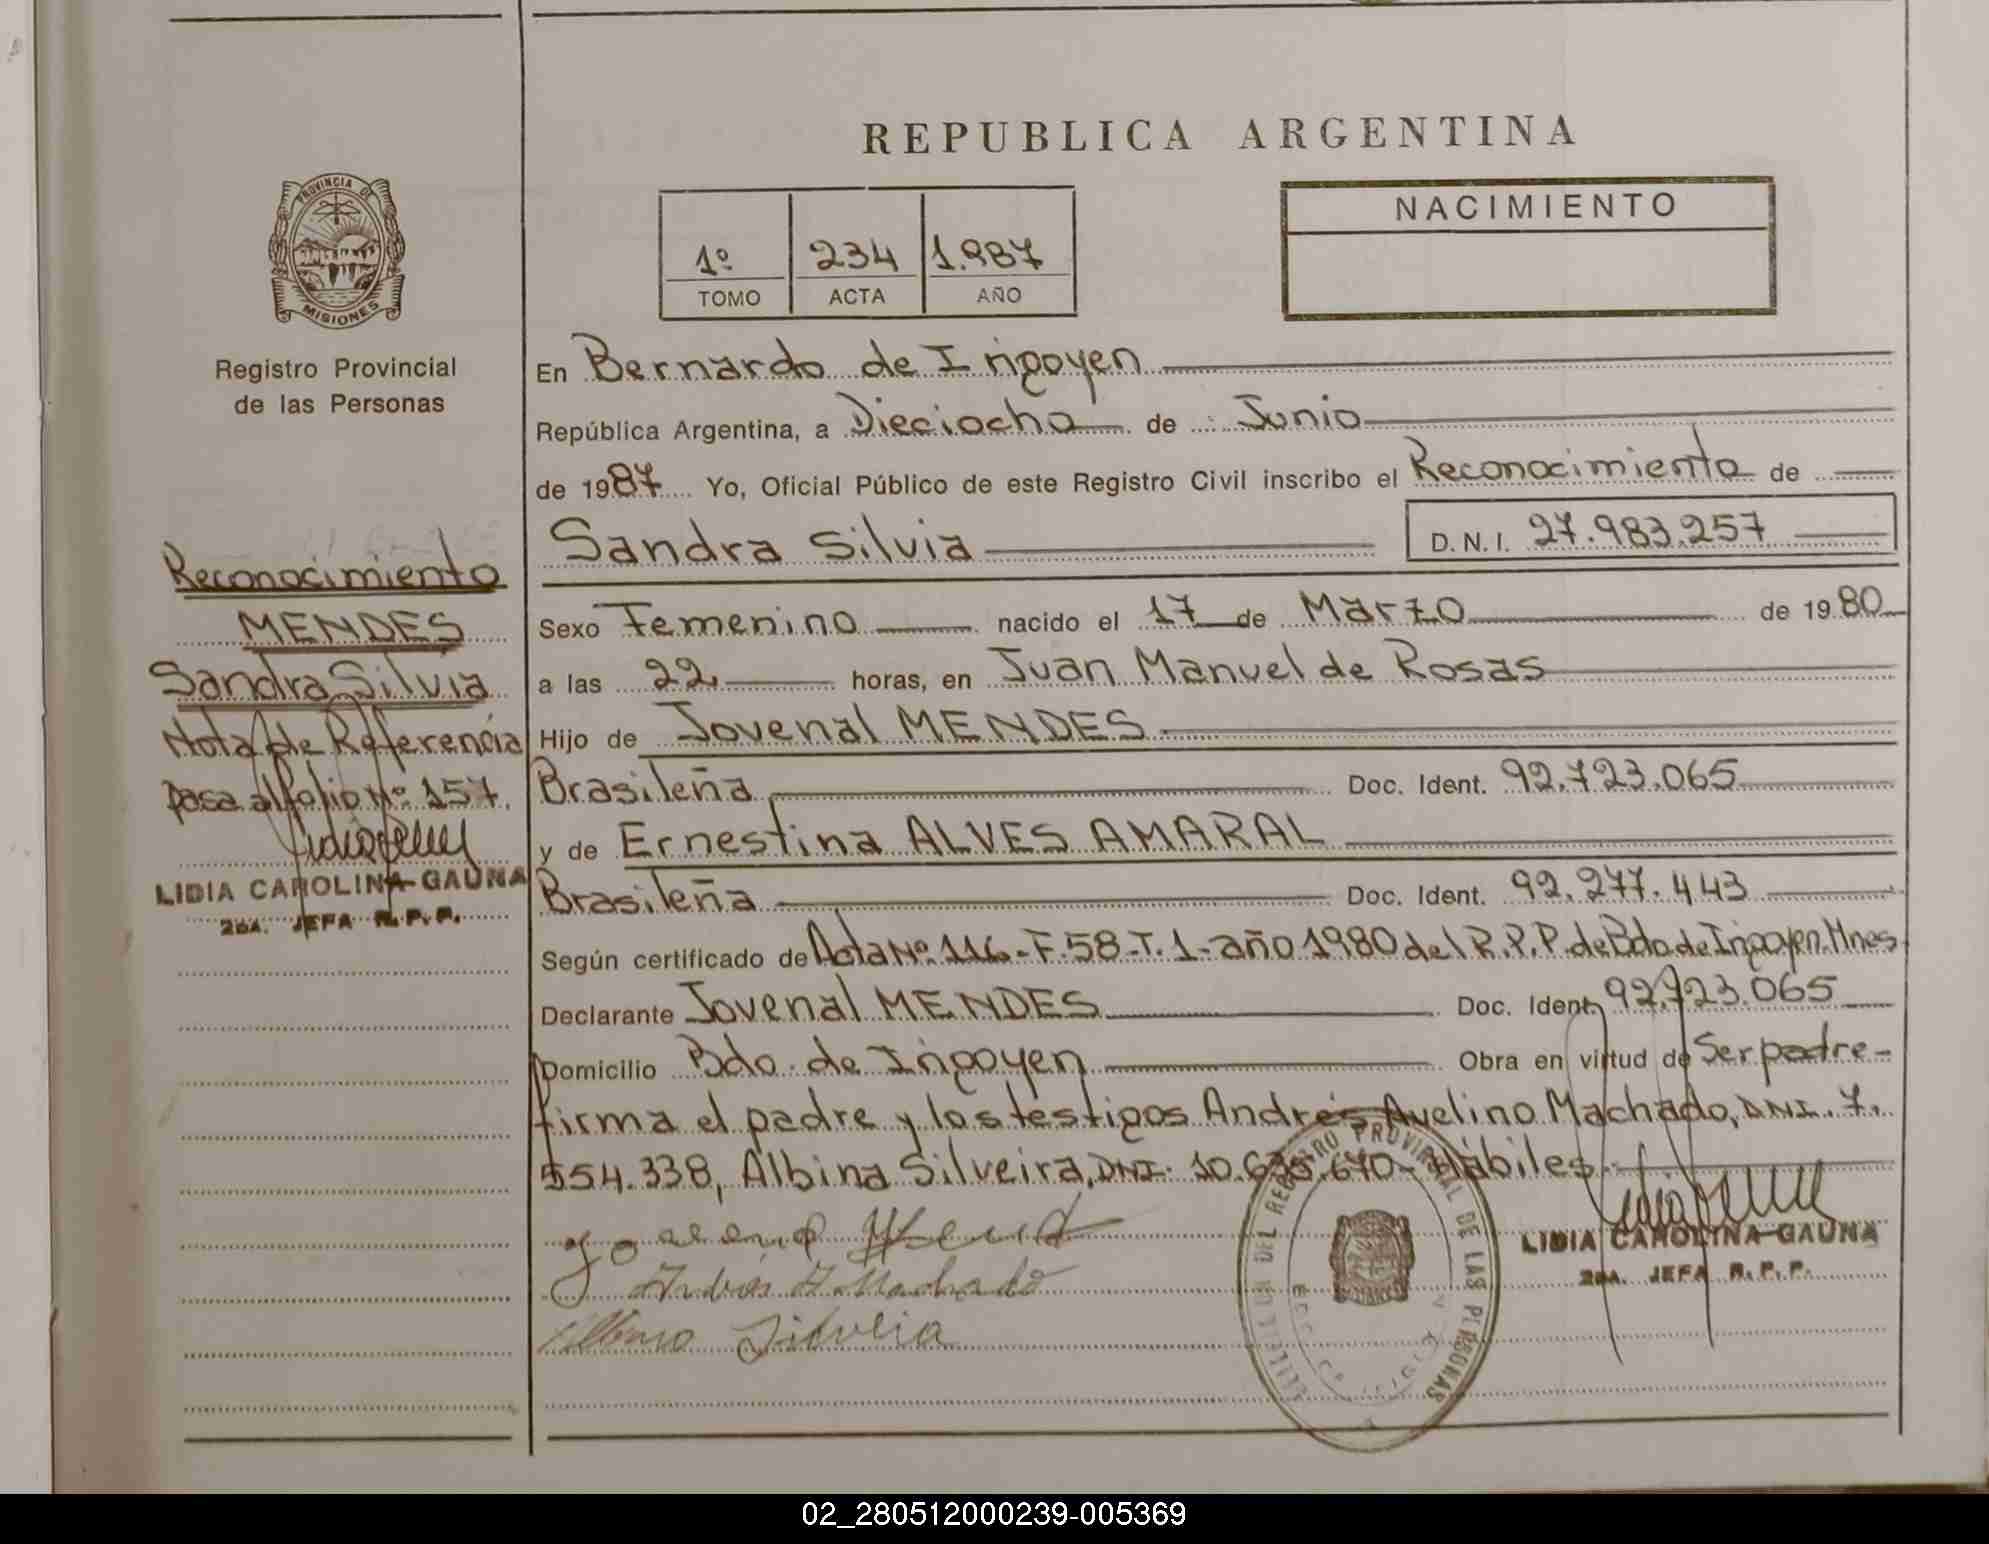 REPUBLICA ARGENTINA
PROVINCIA DE
MISIONES
Registro Provincial
de las Personas
1º 234 1.987
TOMO ACTA AÑO
NACIMIENTO
En Bernardo de Irigoyen
República Argentina, a Dieciocho de Junio
de 1987 Yo, Oficial Público de este Registro Civil inscribo el Reconocimiento de
Sandra Silvia D.N.I. 27.983.257
Sexo Femenino nacido el 17 de Marzo de 1980
a las 22 horas, en Juan Manuel de Rosas
Hijo de Jovenal MENDES
Brasileña Doc. Ident. 92.723.065
y de Ernestina ALVES AMARAL
Brasileña Doc. Ident. 92.277.443
Según certificado de Acta Nº 116-F.58-T.1-año 1980 del R.P.P. de Bdo de Irigoyen. Mnes
Declarante Jovenal MENDES Doc. Ident. 92.723.065
Domicilio Bdo. de Irigoyen Obra en virtud de Ser padre-
firma el padre y los testigos Andrés Avelino Machado, DNI. 7.
554.338, Albina Silveira, DNI. 10. .670- Hábiles.
Andrés A. Machado
Silveira
LIDIA CAROLINA GAUNA
2da. JEFA R.P.P.
DEL REGISTRO PROVINCIAL DE LAS PERSONAS
Reconocimiento
MENDES
Sandra Silvia
Nota de Referencia
pasa al folio Nº 157.
LIDIA CAROLINA GAUNA
2da. JEFA R.P.P.
02_280512000239-005369